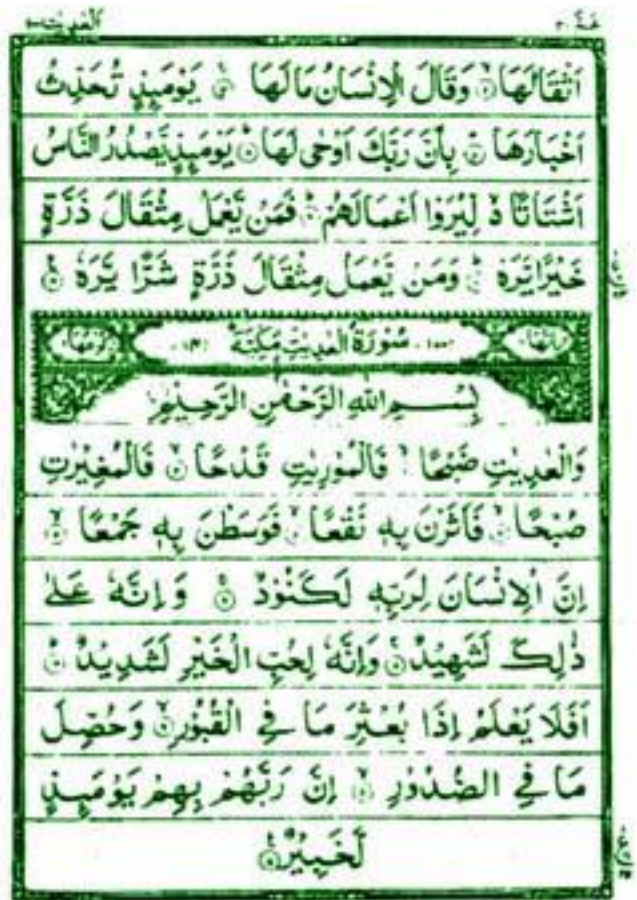 العٰدیٰت ١٠٠
عمّ ٣٠
اَثْقَالَهَا ۙ وَقَالَ الْاِنْسَانُ مَالَهَا ۚ یَوْمَىِٕذٍ تُحَدِّثُ
اَخْبَارَهَا ۙ بِاَنَّ رَبَّكَ اَوْحٰى لَهَا ۙ یَوْمَىِٕذٍ یَّصْدُرُ النَّاسُ
اَشْتَاتًا ۙ۬ لِّیُرَوْا اَعْمَالَهُمْ ۙ فَمَنْ یَّعْمَلْ مِثْقَالَ ذَرَّةٍ
خَیْرًا یَّرَهٗ ۚ وَمَنْ یَّعْمَلْ مِثْقَالَ ذَرَّةٍ شَرًّا یَّرَهٗ ۠
اٰیاتها ١١ (١٠٠) سُوْرَةُ الْعٰدِیٰتِ مَكِّیَّةٌ (١٤) ركوعها ١
بِسْمِ اللهِ الرَّحْمٰنِ الرَّحِیْمِ
وَالْعٰدِیٰتِ ضَبْحًا ۙ فَالْمُوْرِیٰتِ قَدْحًا ۙ فَالْمُغِیْرٰتِ
صُبْحًا ۙ فَاَثَرْنَ بِهٖ نَقْعًا ۙ فَوَسَطْنَ بِهٖ جَمْعًا ۙ
اِنَّ الْاِنْسَانَ لِرَبِّهٖ لَكَنُوْدٌ ۚ وَاِنَّهٗ عَلٰى
ذٰلِكَ لَشَهِیْدٌ ۚ وَاِنَّهٗ لِحُبِّ الْخَیْرِ لَشَدِیْدٌ ؕ
اَفَلَا یَعْلَمُ اِذَا بُعْثِرَ مَا فِی الْقُبُوْرِ ۙ وَحُصِّلَ
مَا فِی الصُّدُوْرِ ۙ اِنَّ رَبَّهُمْ بِهِمْ یَوْمَىِٕذٍ
لَّخَبِیْرٌ ۠